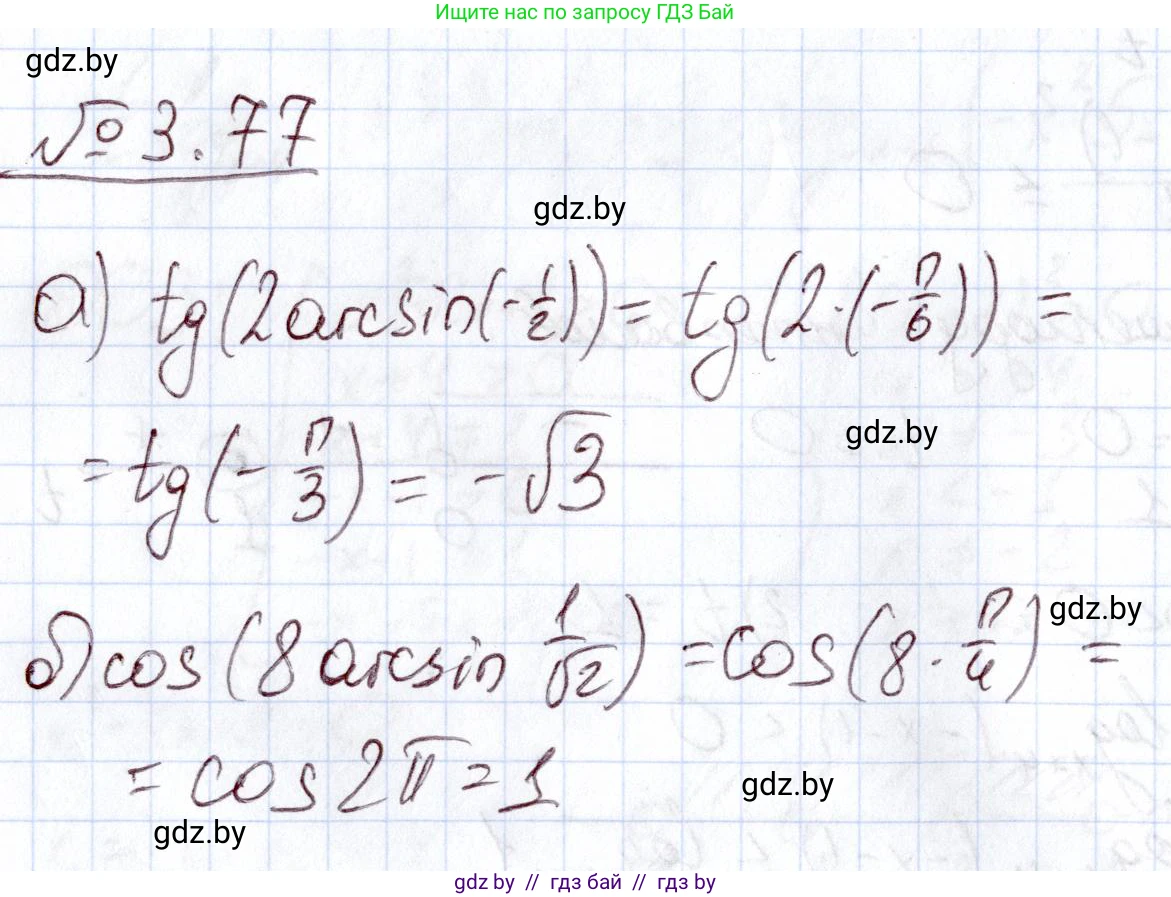 Ищите нас по запросу ГДЗ Бай
gdz.by
№ 3.77
gdz.by
а) tg(2 arcsin(-1/2)) = tg(2·(-π/6)) =
= tg(-π/3) = -√3
gdz.by
б) cos(8 arcsin 1/√2) = cos(8·π/4) =
gdz.by
= cos 2π = 1
gdz.by
gdz.by
gdz by // гдз бай // гдз by